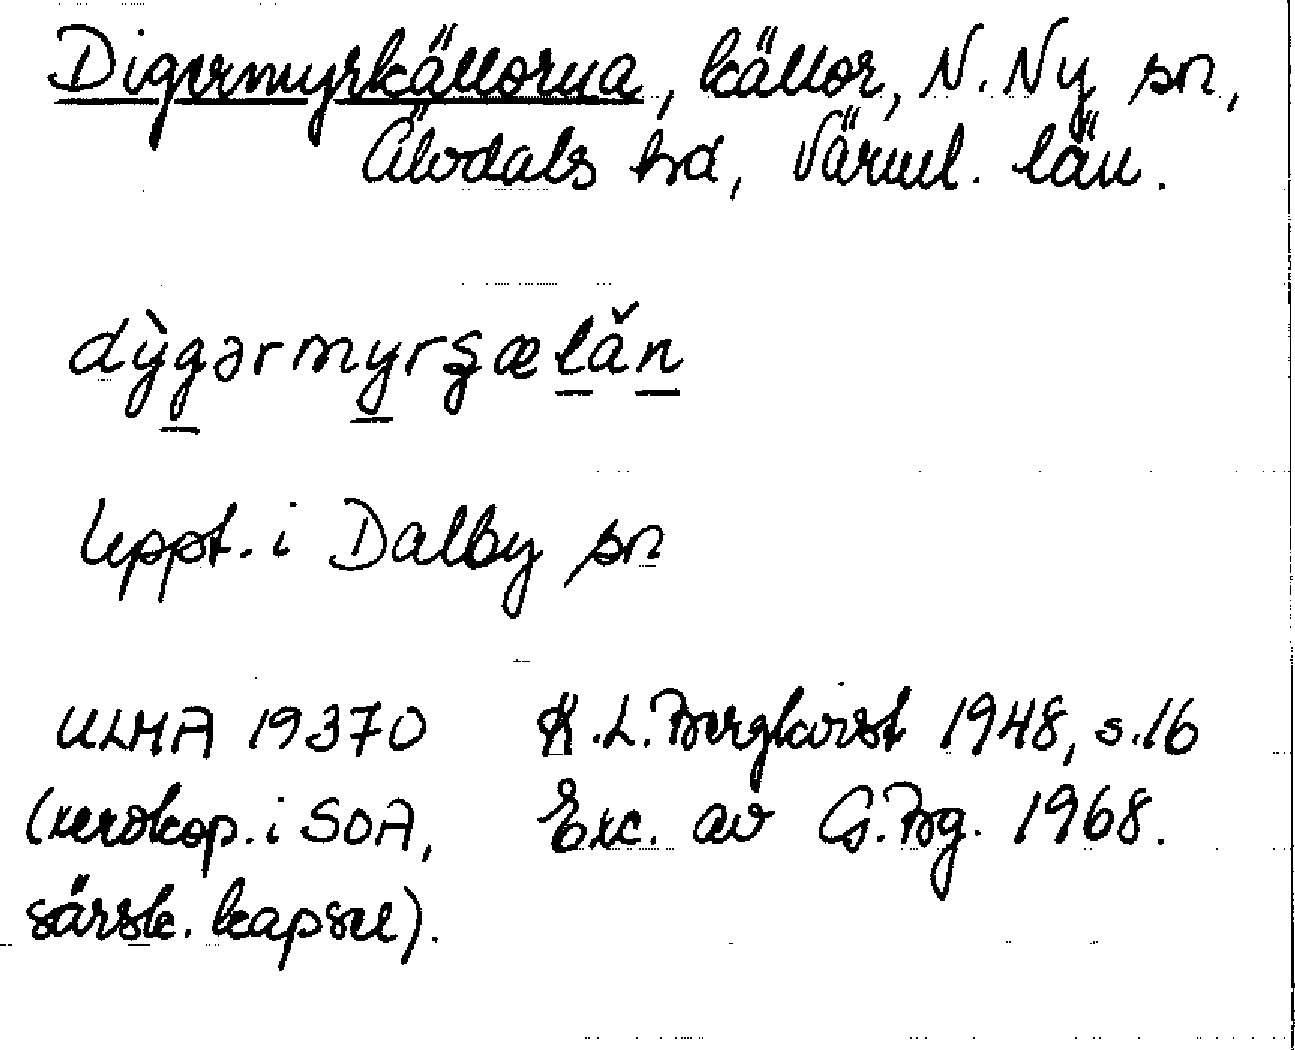 Digermyrkällorna, källor, N. Ny sn,
Älvdals hd, Värml. län.
dỳgərmyrʂælǎn
Uppt. i Dalby sn
ULMA 19370 K. L. Bergkvist 1948, s. 16
(xerokop. i SOA, Exc. av G. Bg. 1968.
särsk. kapsel).